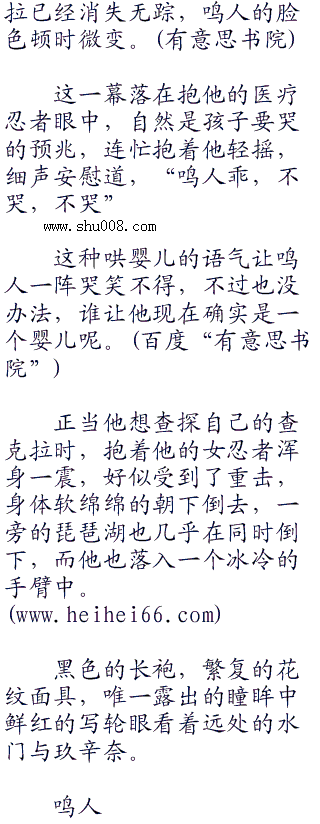 拉已经消失无踪，鸣人的脸
色顿时微变。(有意思书院)
这一幕落在抱他的医疗
忍者眼中，自然是孩子要哭
的预兆，连忙抱着他轻摇，
细声安慰道，“鸣人乖，不
哭，不哭”
www.shu008.com
这种哄婴儿的语气让鸣
人一阵哭笑不得，不过也没
办法，谁让他现在确实是一
个婴儿呢。(百度“有意思书
院”)
正当他想查探自己的查
克拉时，抱着他的女忍者浑
身一震，好似受到了重击，
身体软绵绵的朝下倒去，一
旁的琵琶湖也几乎在同时倒
下，而他也落入一个冰冷的
手臂中。
(www.heihei66.com)
黑色的长袍，繁复的花
纹面具，唯一露出的瞳眸中
鲜红的写轮眼看着远处的水
门与玖辛奈。
鸣人